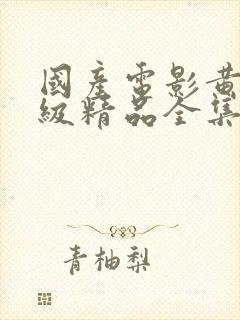 國產電影黄
級精品全集
青柚梨